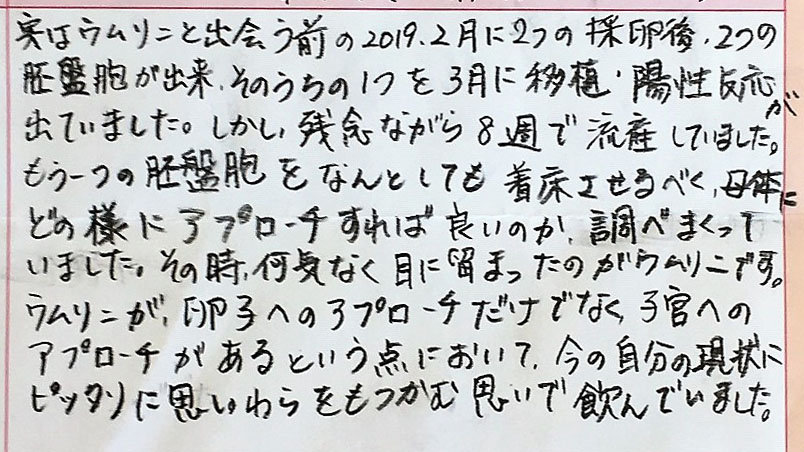 実はウムリンと出会う前の2019.2月に2つの採卵後、2つの
胚盤胞が出来、そのうちの1つを3月に移植・陽性反応が
出ていました。しかし、残念ながら8週で流産していました。
もう一つの胚盤胞をなんとしても着床させるべく、母体に
どの様にアプローチすれば良いのか、調べまくって
いました。その時、何気なく目に留まったのがウムリンです。
ウムリンが、卵子へのアプローチだけでなく、子宮への
アプローチがあるという点において、今の自分の現状に
ピッタリに思いわらをもつかむ思いで飲んでいました。